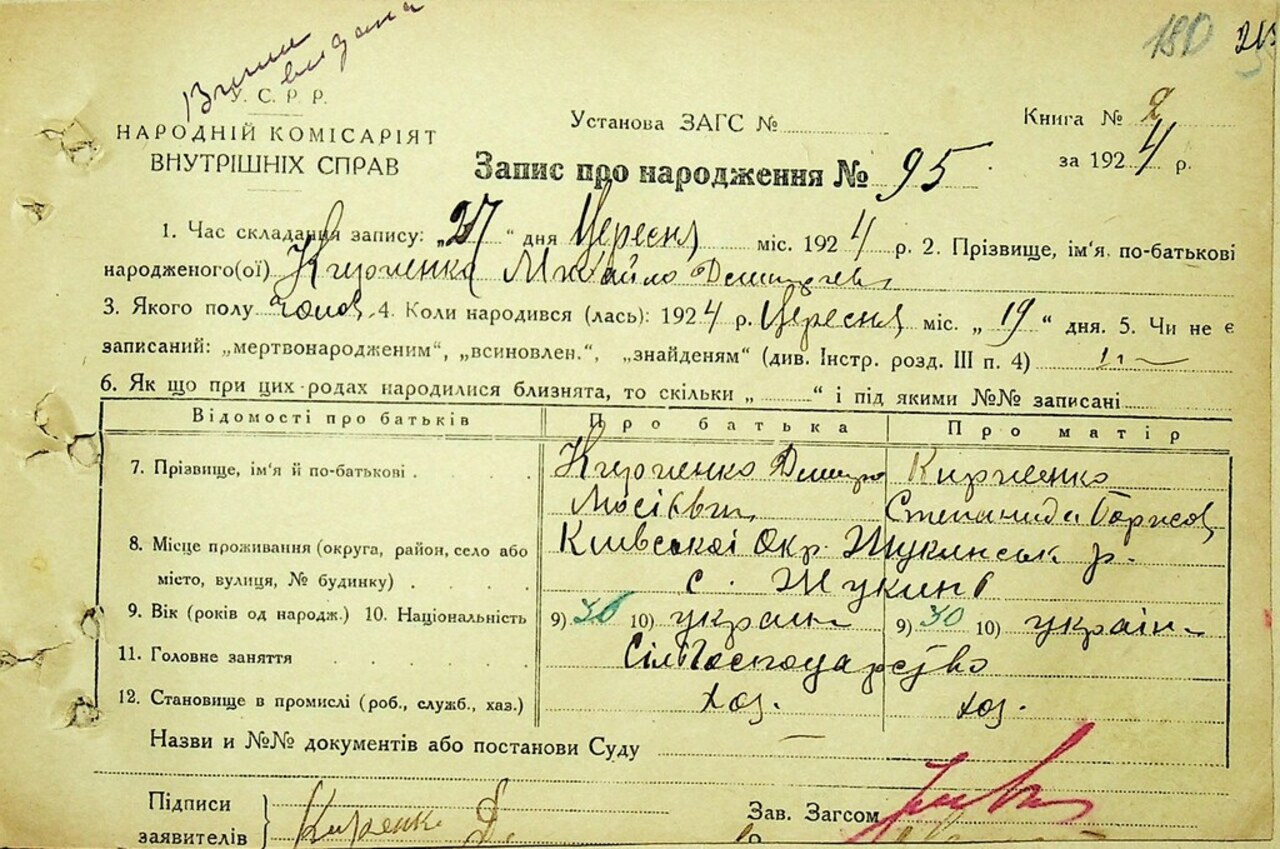 180
Виписи видана
У. С. Р. Р.
НАРОДНІЙ КОМІСАРІЯТ
ВНУТРІШНІХ СПРАВ
Установа ЗАГС №
Книга № 2
за 1924 р.
Запис про народження № 95
1. Час складання запису: „27“ дня Вересня міс. 1924 р. 2. Прізвище, ім'я, по-батькові
народженого(ої) Кирієнко Михайло Дмитрієв
3. Якого полу чолов. 4. Коли народився (лась): 1924 р. Вересня міс. „19“ дня. 5. Чи не є
записаний: „мертвонародженим“, „всиновлен.“, „знайденям“ (див. Інстр. розд. III п. 4)
6. Як що при цих родах народилися близнята, то скільки „ “ і під якими №№ записані
Відомості про батьків Про батька Про матір
7. Прізвище, ім'я й по-батькові Кирієнко Дмитро Кирієнко
Мосієвич Степанида Борисов
8. Місце проживання (округа, район, село або Київської Окр. Жукинськ р.
місто, вулиця, № будинку) с. Жукин
9. Вік (років од народж.) 10. Національність 9) 36 10) україн 9) 30 10) україн
11. Головне заняття Сільгосподарство
12. Становище в промислі (роб., служб., хаз.) хоз. хоз.
Назви и №№ документів або постанови Суду
Підписи
заявителів
Зав. Загсом